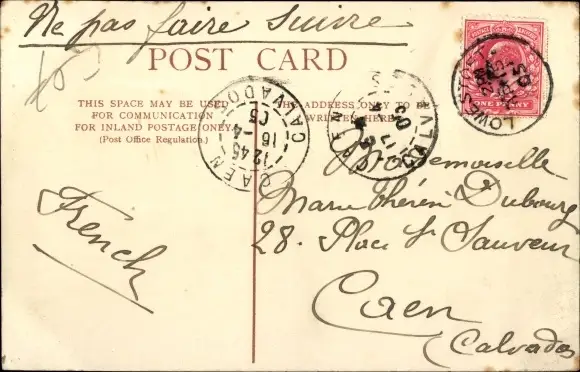 Ne pas faire suivre
POST CARD
THIS SPACE MAY BE USED
FOR COMMUNICATION
FOR INLAND POSTAGE ONLY
(Post Office Regulation.)
THE ADDRESS ONLY TO BE
WRITTEN HERE
ONE PENNY
LOWESTOFT
CAEN
CALVADOS
12 45
16 - 4
05
CAEN
CALVADOS
17
05
French
Mademoiselle
Marie Thérèse Dubourg
28. Place St Sauveur
Caen
(Calvados